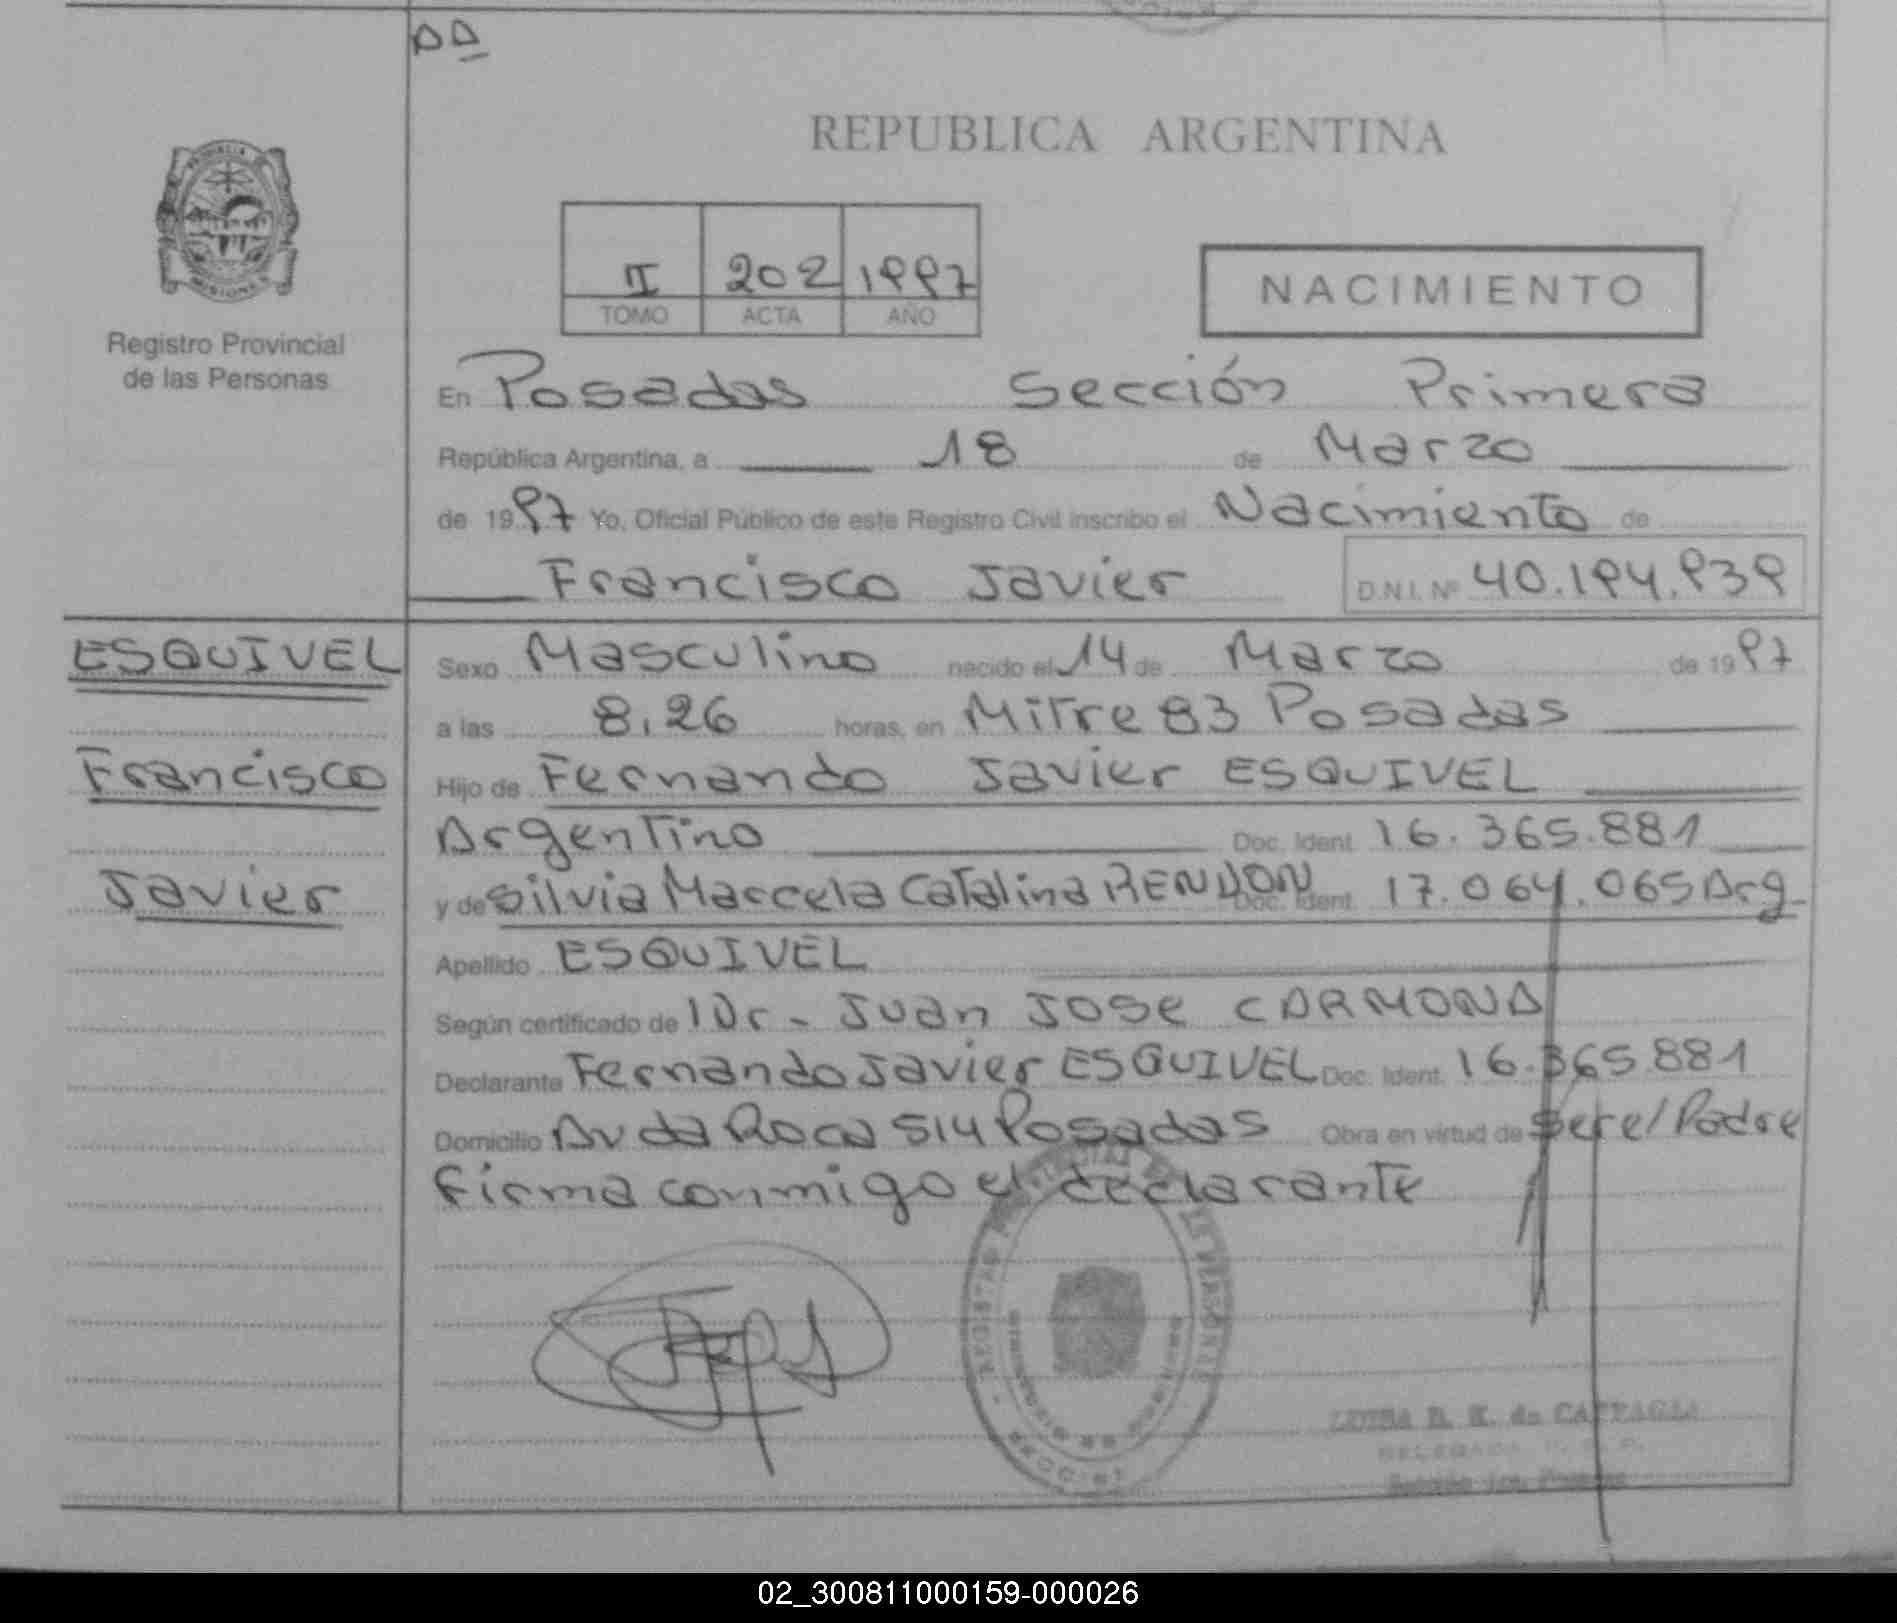 REPUBLICA ARGENTINA
PROVINCIA DE
MISIONES
Registro Provincial
de las Personas
II 202 1997
TOMO ACTA AÑO
NACIMIENTO
En Posadas Sección Primera
República Argentina, a 18 de Marzo
de 1997 Yo, Oficial Público de este Registro Civil inscribo el Nacimiento de
Francisco Javier D.N.I. Nº 40.194.939
ESQUIVEL
Francisco
Javier
Sexo Masculino nacido el 14 de Marzo de 1997
a las 8,26 horas, en Mitre 83 Posadas
Hijo de Fernando Javier ESQUIVEL
Argentino Doc. Ident. 16.365.881
y de Silvia Marcela Catalina RENDON Doc. Ident. 17.064.065 Arg
Apellido ESQUIVEL
Según certificado de Dr. Juan Jose CARMONA
Declarante Fernando Javier ESQUIVEL Doc. Ident. 16.365.881
Domicilio Avda Roca 514 Posadas Obra en virtud de Padre
Firma conmigo el declarante
02_300811000159-000026